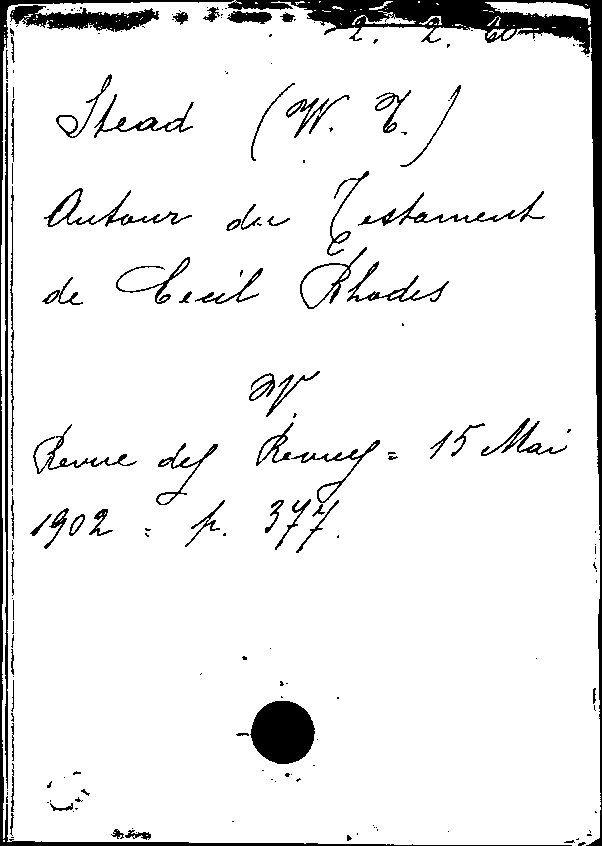 2. 2. 60
Stead (W. T.)
Autour du Testament
de Cecil Rhodes
V.
Revue des Revues = 15 Mai
1902 = p. 377.